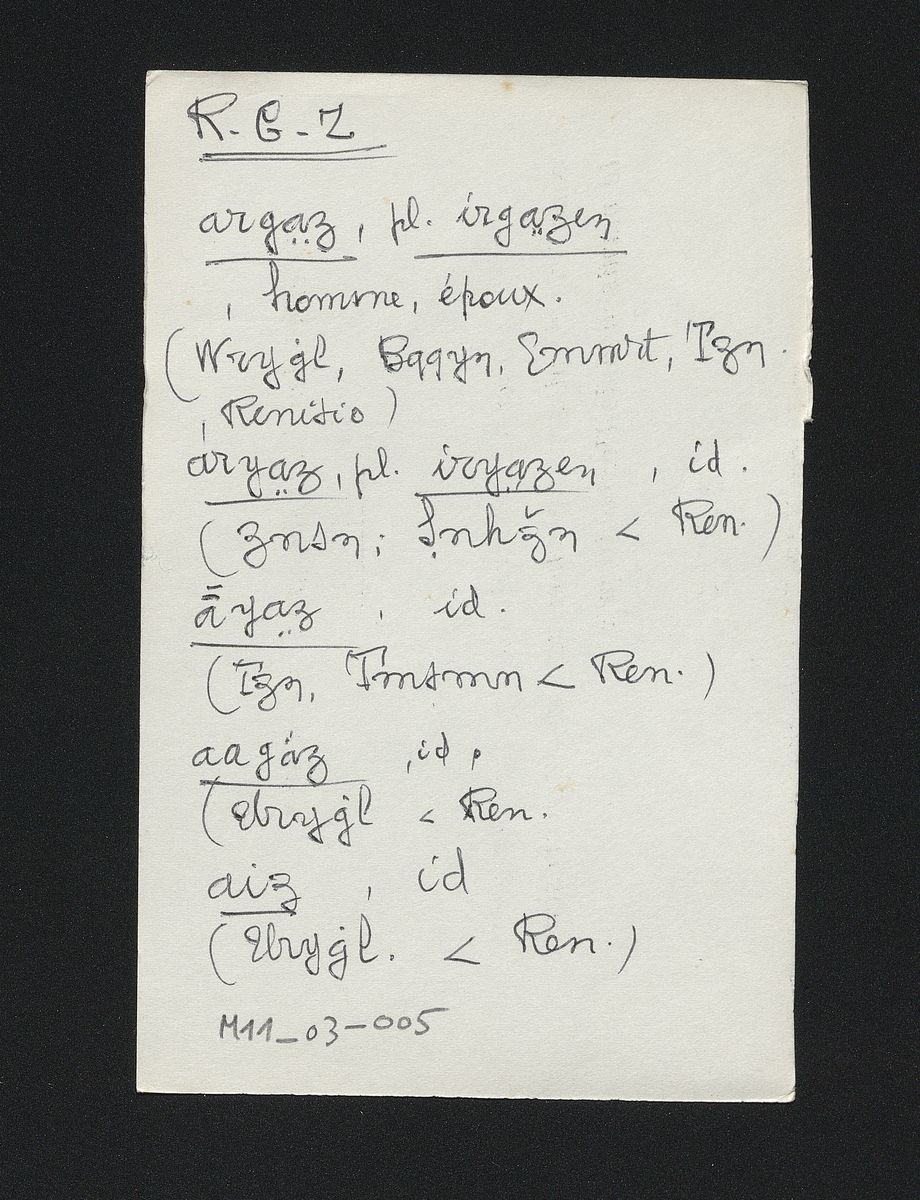 R-G-Z
argạ̈z, pl. irgạ̈zen
, homme, époux.
(Wryġl, Bqqyn, Emmrt, Izn.
, Renisio)
aryạ̈z, pl. iryạ̈zen , id.
(Znsn; Ṣnhğn < Ren.)
ā̄yạ̈z , id.
(Izn, Tmsmn < Ren.)
aagáz , id.
(Wryġl < Ren.
aiz , id
(Wryġl. < Ren.)
M11_03-005